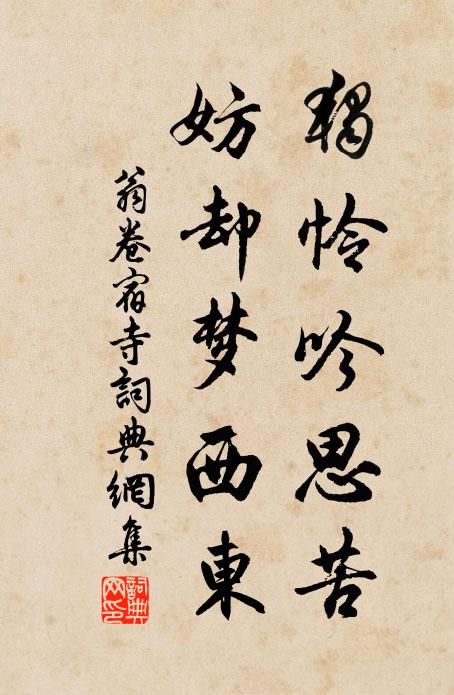 獨怜吟思苦
妨却梦西東
翁卷宿寺詞典網集
詞典
网印